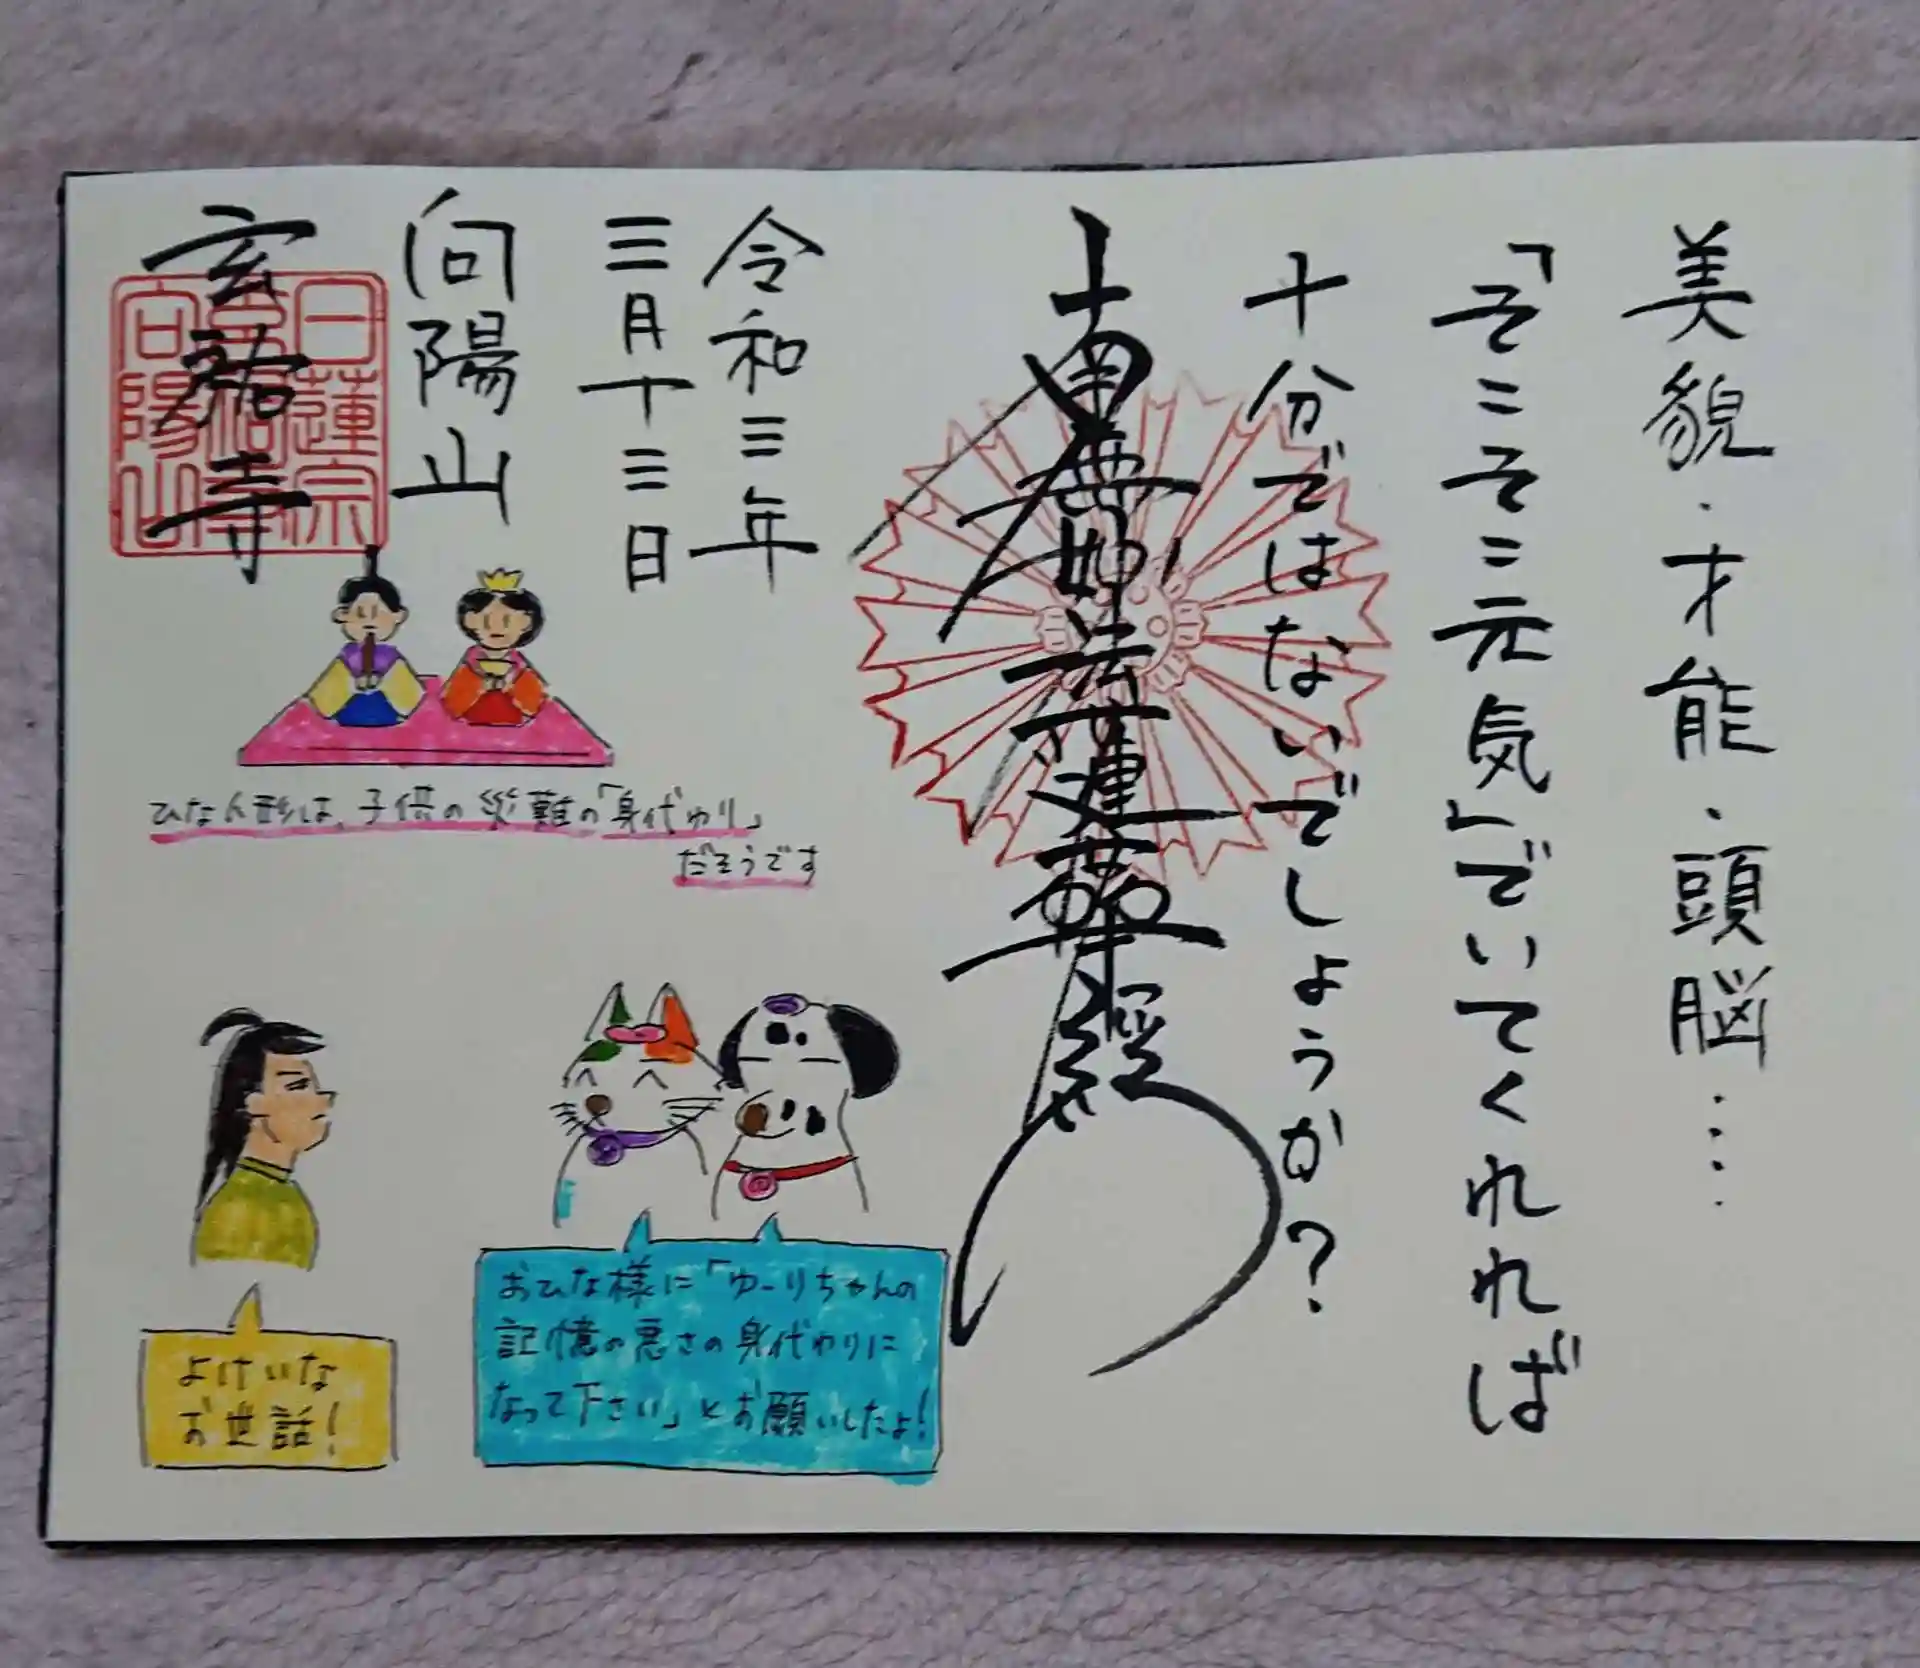 美貌・才能・頭脳……
「そこそこ元気」でいてくれれば
十分ではないでしょうか？
南無妙法蓮華経
令和三年
三月十三日
向陽山
玄祐寺
日蓮宗
玄祐寺
向陽山
ひな人形は、子供の災難の「身代わり」
だそうです
おひな様に「ゆーりちゃんの
記憶の悪さの身代わりに
なって下さい」とお願いしたよ！
よけいな
お世話！